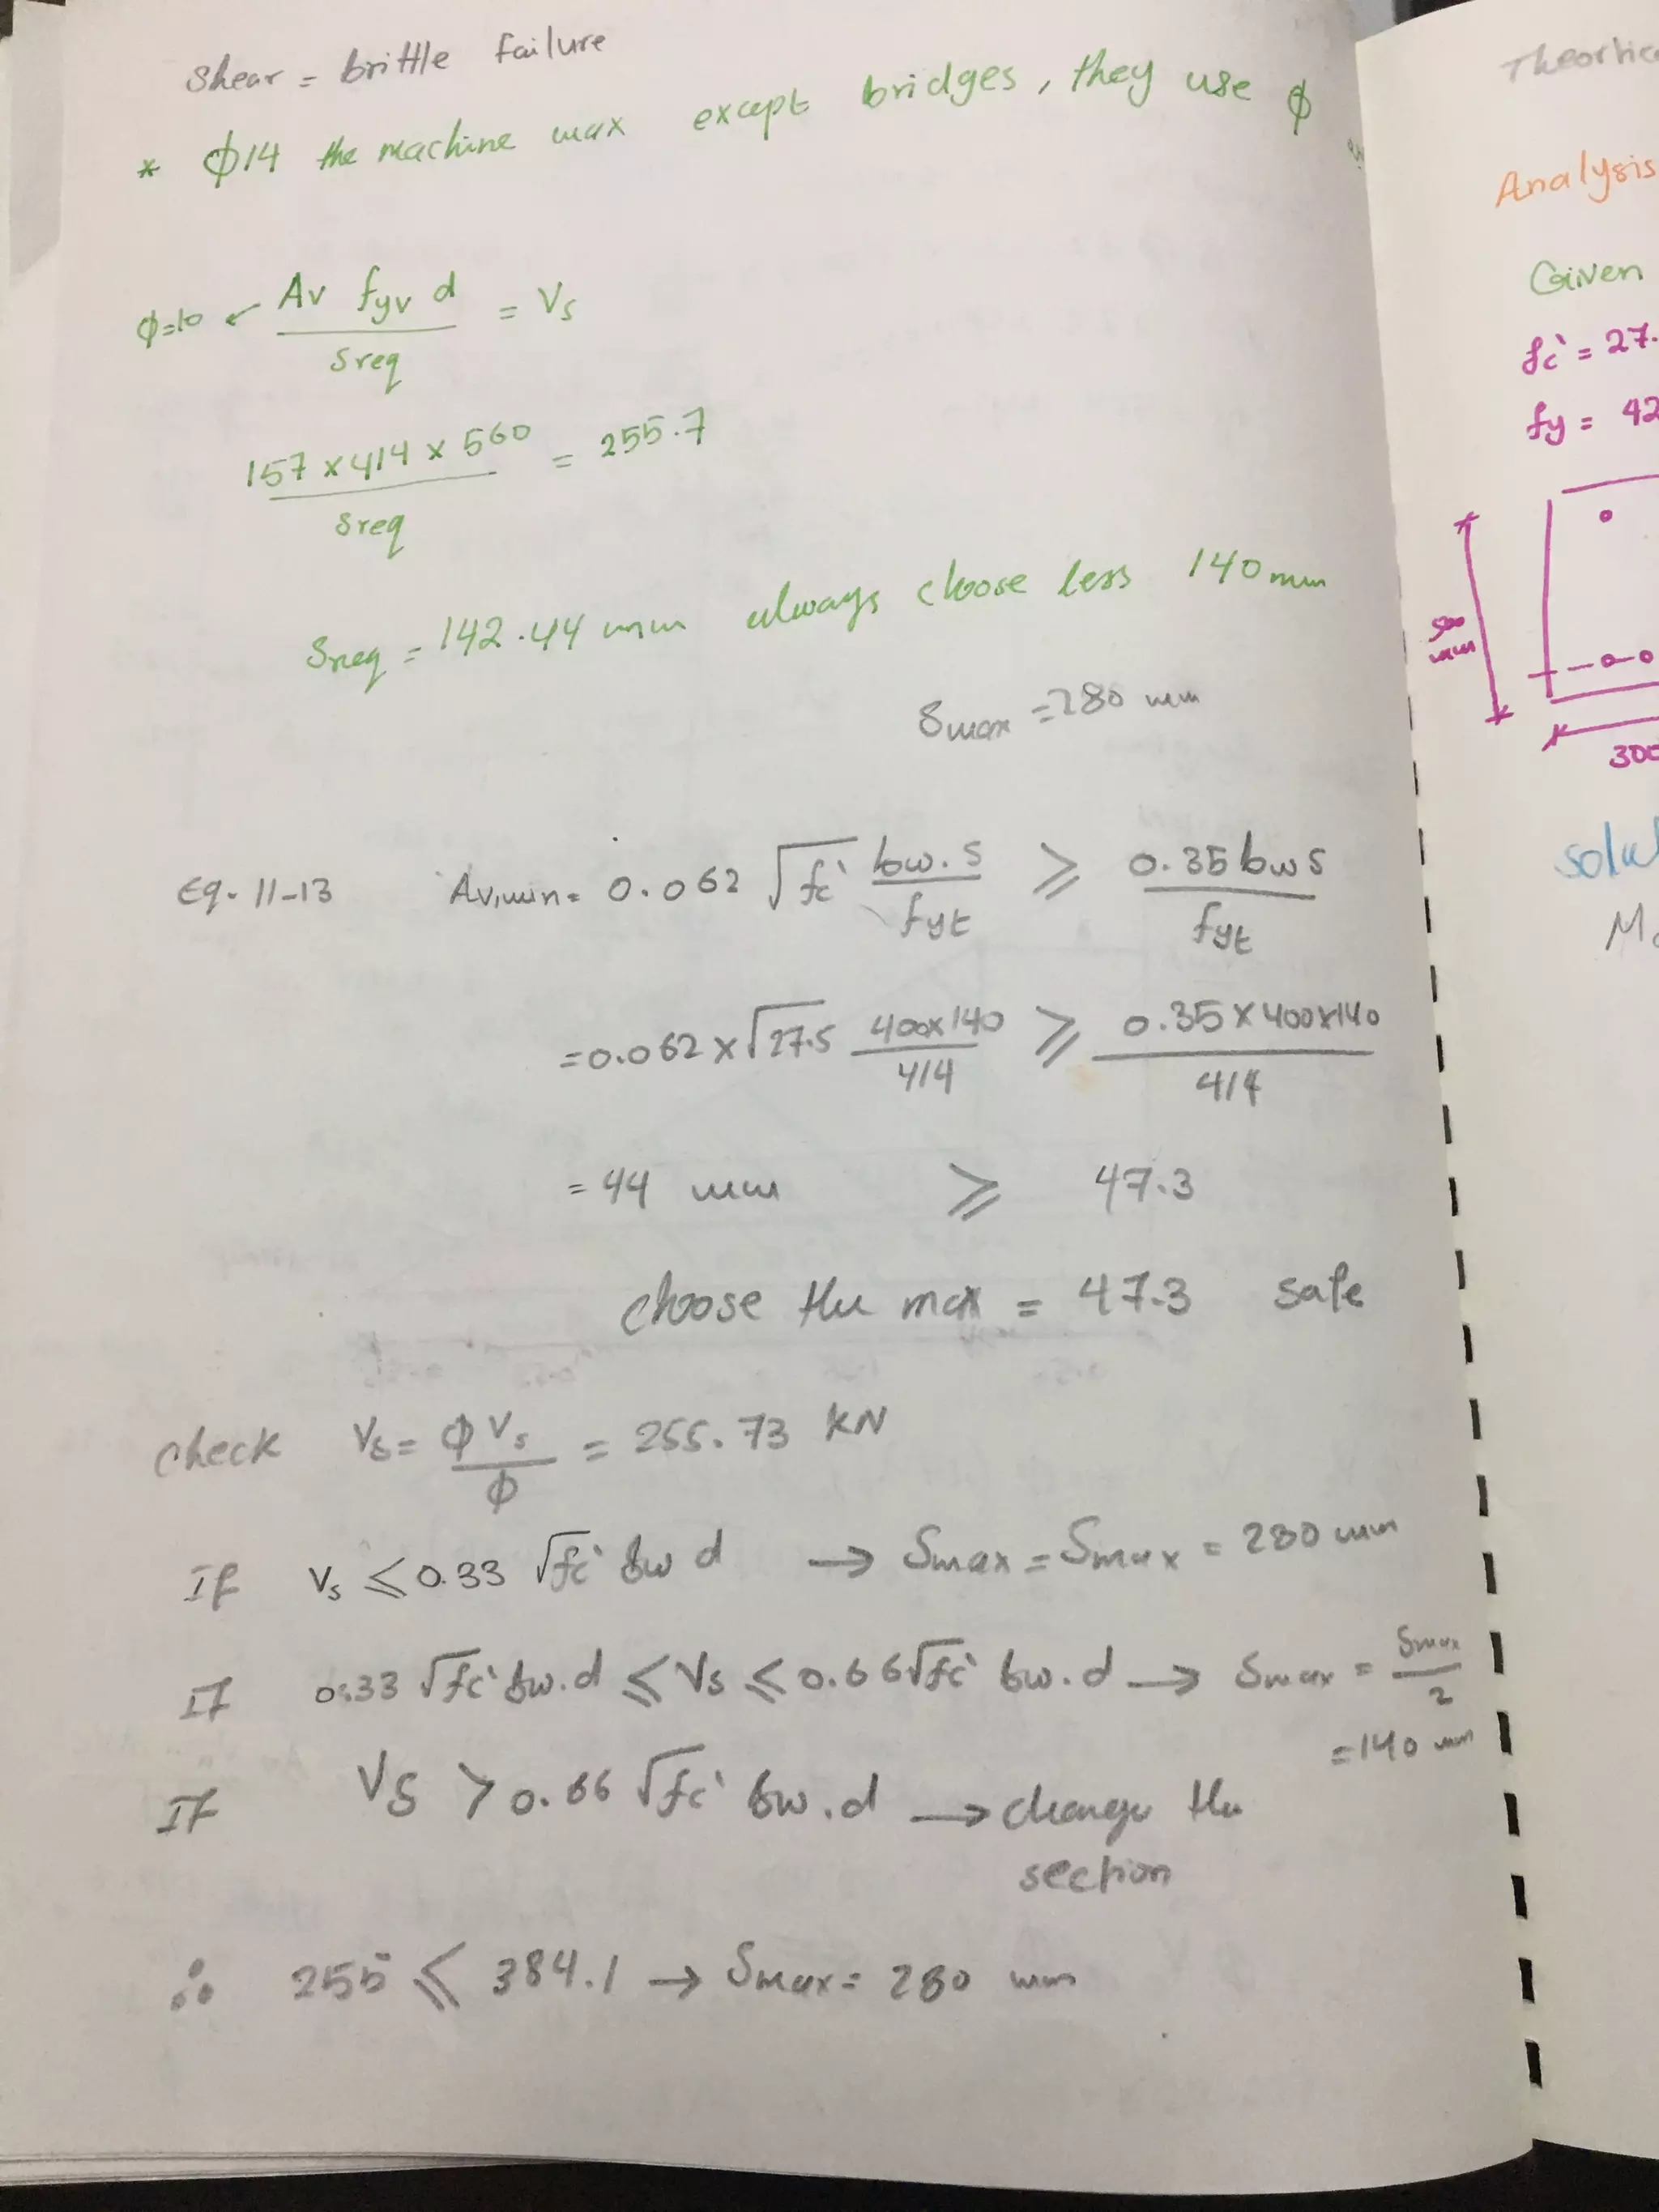 Shear = brittle failure
* ϕ14 the machine max except bridges, they use ϕ
ϕ=10 ← Av fyv d / Sreq = Vs
157 x 414 x 560 / Sreq = 255.7
Sreq = 142.44 mm always choose less 140 mm
Smax = 280 mm
Eq. 11-13 Av,min = 0.062 √fc' bw.s / fyt ⩾ 0.35 bw s / fyt
= 0.062 x √27.5 400x140 / 414 ⩾ 0.35 x 400x140 / 414
= 44 mm ⩾ 47.3
choose the max = 47.3 safe
check Vs = ϕVs / ϕ = 255.73 KN
If Vs ⩽ 0.33 √fc' bw d → Smax = Smax = 280 mm
If 0.33 √fc' bw.d ⩽ Vs ⩽ 0.66 √fc' bw.d → Smax = Smax / 2
= 140 mm
If Vs > 0.66 √fc' bw.d → change the
section
∴ 255 ⩽ 384.1 → Smax = 280 mm
Analysis
Given
fc' = 27.
fy = 42
500
mm
300